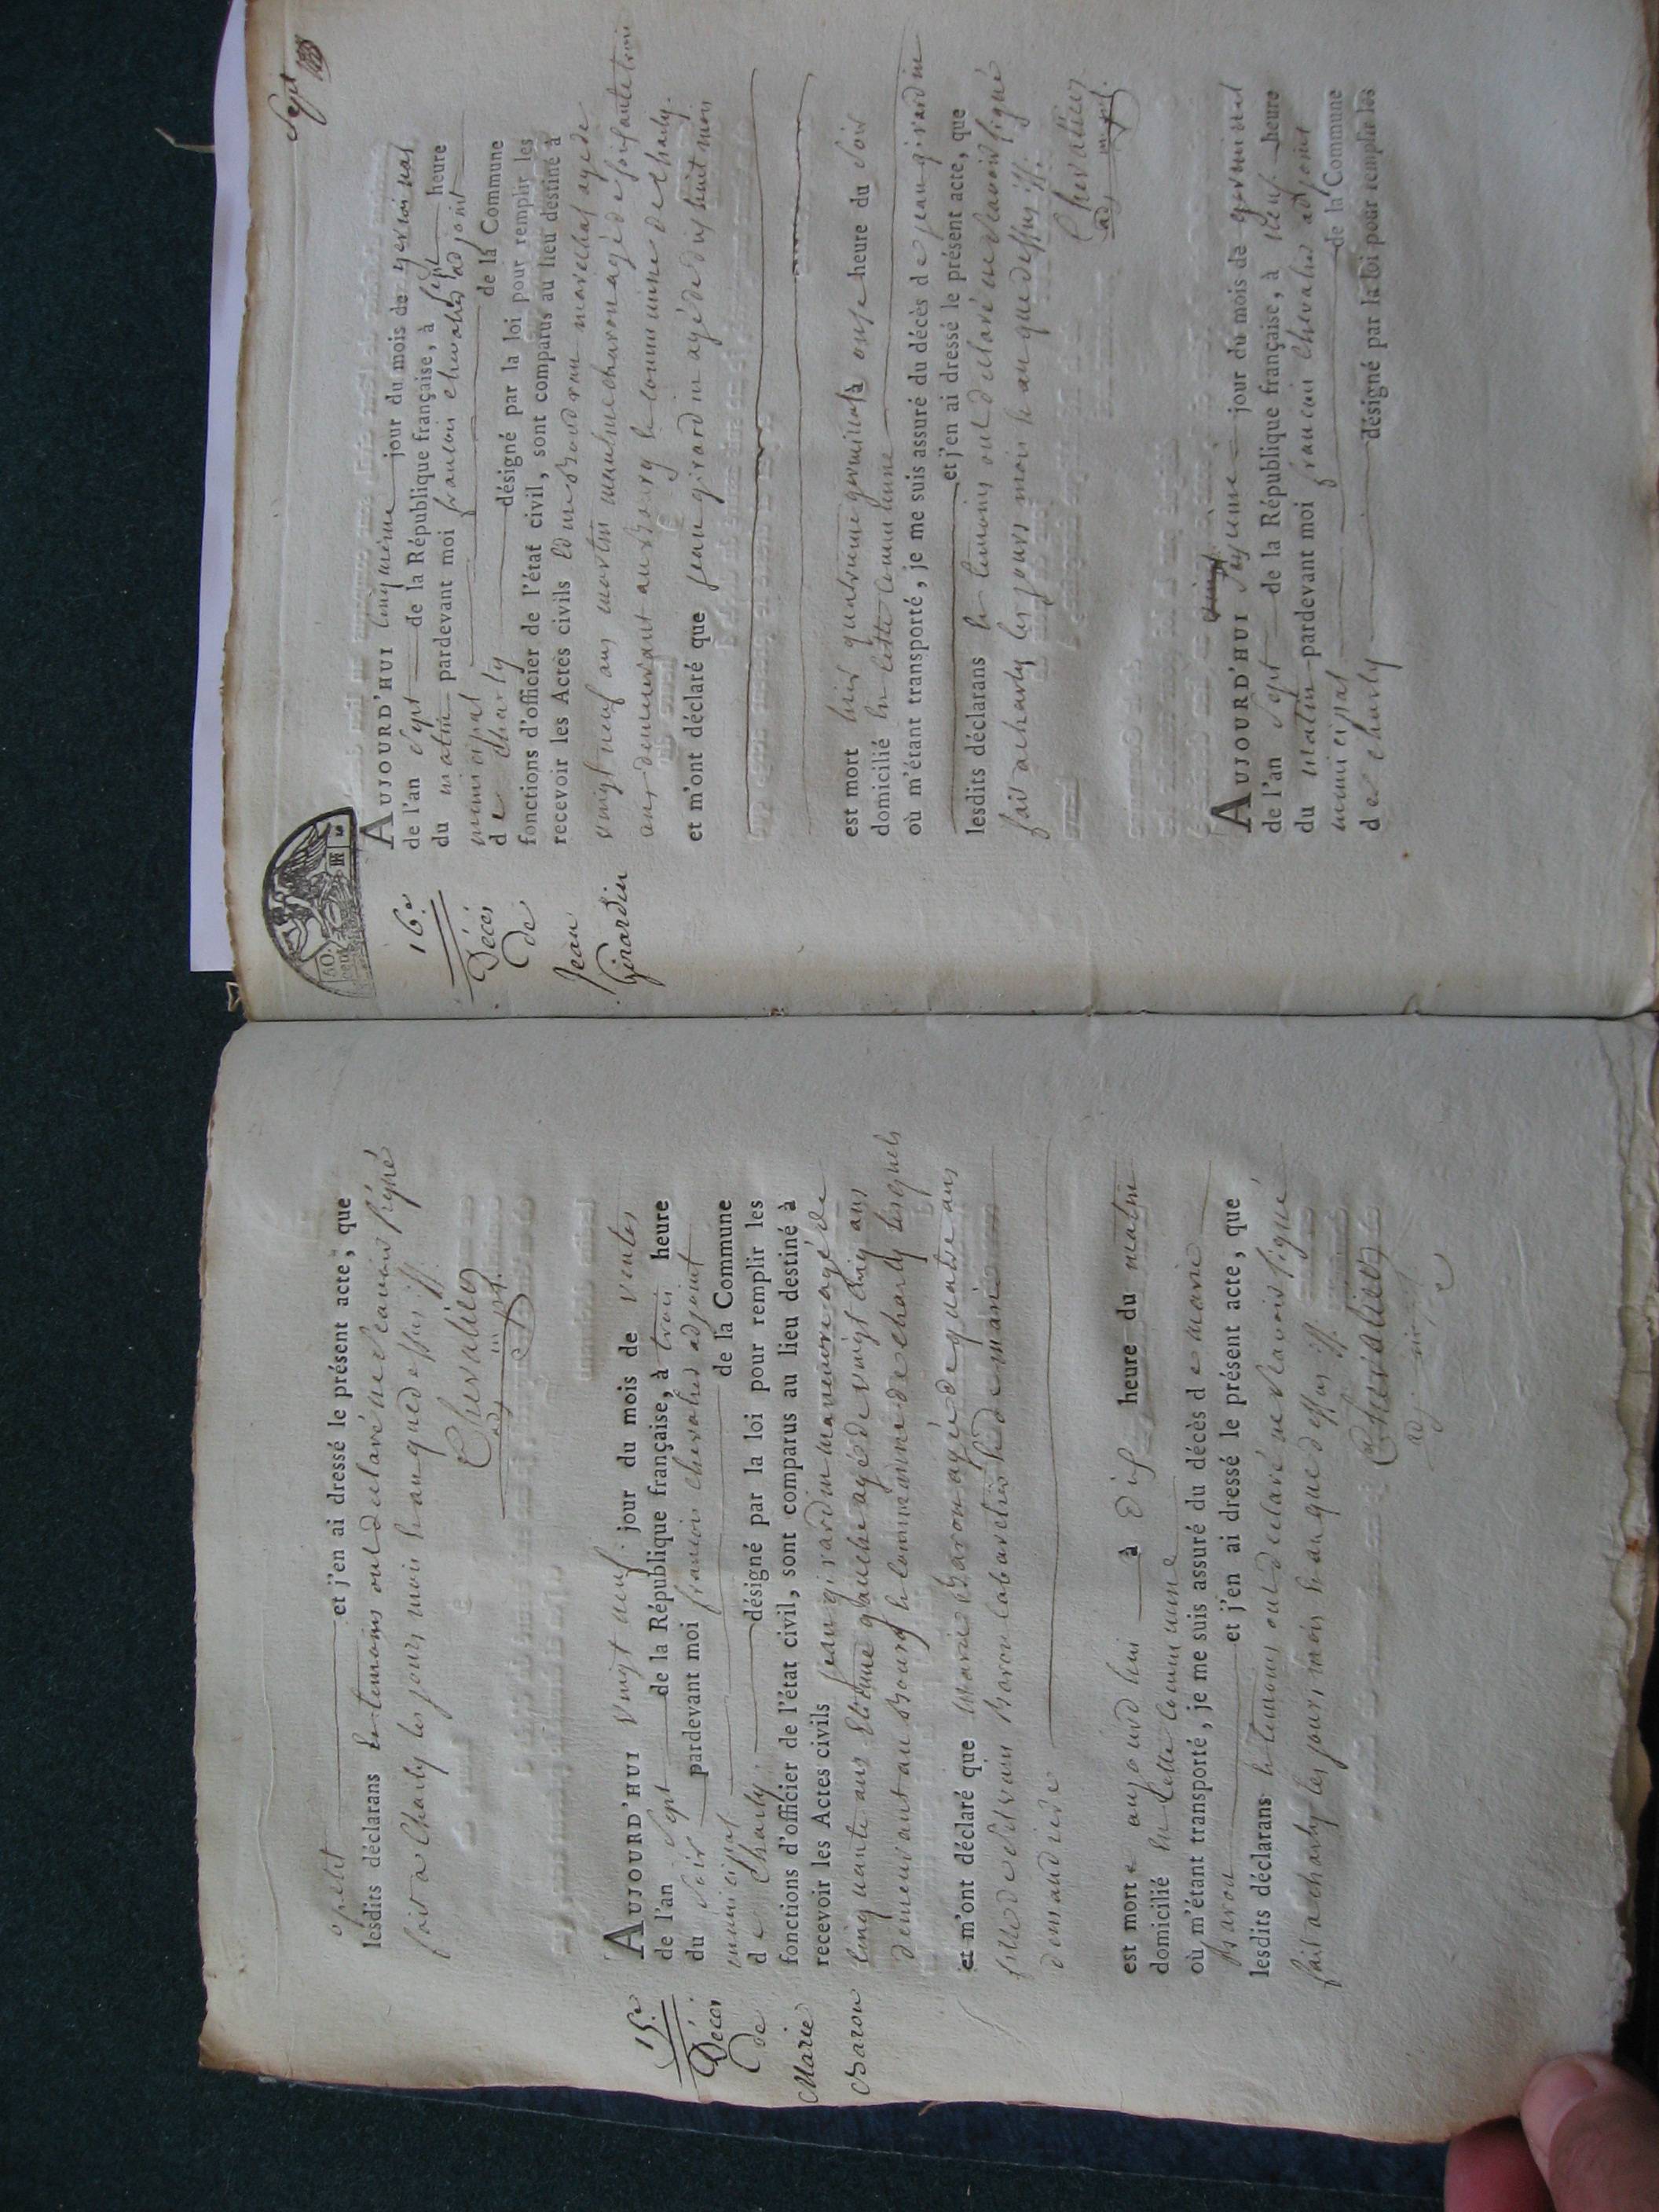 et j'en ai dressé le présent acte, que
lesdits déclarans et temoins ont declaré ne scavoir signé
fait a Charly les jours mois et an que dessus
Chevalier
adj
15.e
Décès
de
Marie
Baron
AUJOURD'HUI vingt neuf jour du mois de ventos
de l'an sept de la République française, à trois heure
du soir pardevant moi francois chevalier adjoint
municipal de la Commune
de Charly désigné par la loi pour remplir les
fonctions d'officier de l'état civil, sont comparus au lieu destiné à
recevoir les Actes civils jean girardin manœuvre agé de
cinquante ans Etienne gauche agé de vingt cinq ans
demeurant au Bourg et commune de charly lesquels
et m'ont déclaré que Marie Baron agée de quatre ans
fille de Baron et de marie
est morte aujourd hui à dix heure du matin
domicilié en cette commune
où m'étant transporté, je me suis assuré du décès de marie
Baron et j'en ai dressé le présent acte, que
lesdits déclarans et temoins ont declaré ne scavoir signé
fait a charly les jours mois et an que dessus
Chevalier
adj
Sept
16.e
Décès
de
Jean
Girardin
AUJOURD'HUI cinqmeme jour du mois de germinal
de l'an sept de la République française, à sept heure
du matin pardevant moi francois chevalier adjoint
municipal de la Commune
de Charly désigné par la loi pour remplir les
fonctions d'officier de l'état civil, sont comparus au lieu destiné à
recevoir les Actes civils Edme marechal agé de
vingt neuf ans martin charon agé de soixante trois
ans demeurant au Bourg et commune de charly
et m'ont déclaré que jean girardin agé de dix huit mois
est mort hier quatrieme germinal à onze heure du soir
domicilié en cette commune
où m'étant transporté, je me suis assuré du décès de jean girardin
et j'en ai dressé le présent acte, que
lesdits déclarans et temoins ont declaré ne scavoir signé
fait a charly les jours mois et an que dessus
Chevalier
adj
AUJOURD'HUI jour du mois de germinal
de l'an sept de la République française, à neuf heure
du matin pardevant moi francois chevalier adjoint
municipal de la Commune
de charly désigné par la loi pour remplir les